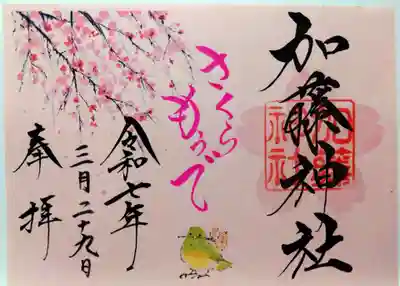 加藤神社
さくら
もうで
令和七年
三月二十九日
奉拝